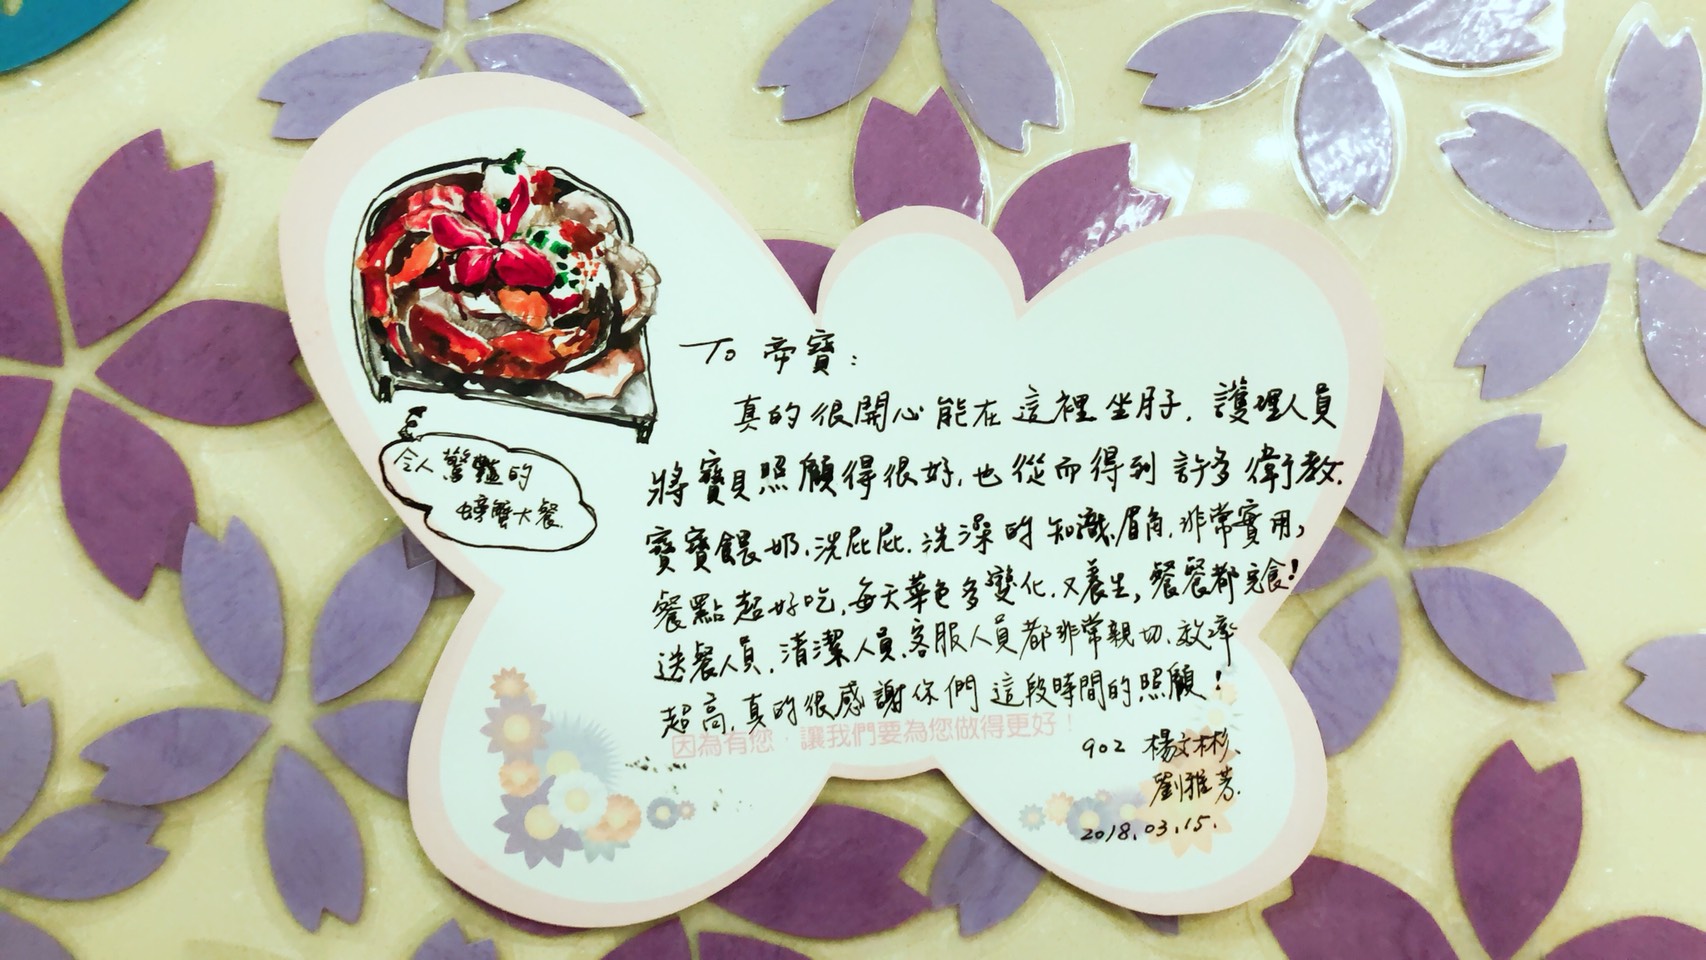 To 帝寶：
真的很開心能在這裡坐月子，護理人員
將寶貝照顧得很好，也從而得到許多衛教，
寶寶餵奶、洗屁屁、洗澡的知識眉角，非常實用，
餐點超好吃，每天菜色多變化，又養生，餐餐都完食！
送餐人員、清潔人員、客服人員都非常親切、效率
超高，真的很感謝你們這段時間的照顧！
因為有您，讓我們要為您做得更好！
902 楊文彬、
劉雅芳.
2018.03.15.
令人驚豔的
螃蟹大餐